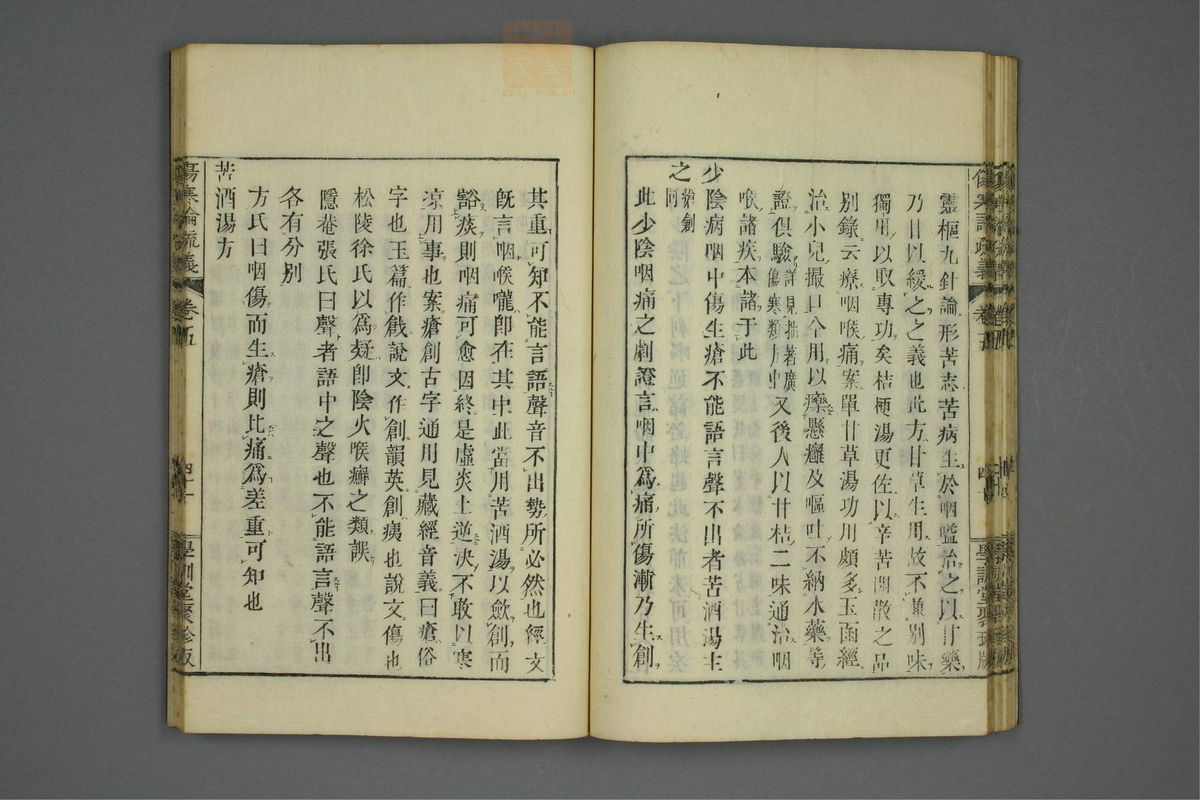 靈樞九針論形苦志苦病生於咽嗌治之以甘藥
乃甘以緩之之義也此方甘草生用故不兼別味
獨用以取專功矣桔梗湯更佐以辛苦開散之品
別錄云療咽喉痛案單甘草湯功用頗多玉函經
治小兒撮口今用以療懸癰及嘔吐不納水藥等
證俱驗詳見拙著廣傷寒類方中又後人以甘桔二味通治咽
喉諸疾本諸于此
少陰病咽中傷生瘡不能語言聲不出者苦酒湯主
之瘡創同
此少陰咽痛之劇證言咽中爲痛所傷漸乃生創
其重可知不能言語聲音不出勢所必然也經文
旣言咽喉嚨卽在其中此當用苦酒湯以斂創而
豁痰則咽痛可愈因終是虛炎上逆決不敢以寒
凉用事也案瘡創古字通用見藏經音義曰瘡俗
字也玉篇作戧說文作創韻英創痍也說文傷也
松陵徐氏以爲疑卽陰火喉癬之類誤
隱菴張氏曰聲者語中之聲也不能語言聲不出
各有分別
方氏曰咽傷而生瘡則比痛爲差重可知也
苦酒湯方
傷寒論疏義 卷五 四十 學訓堂聚珍版